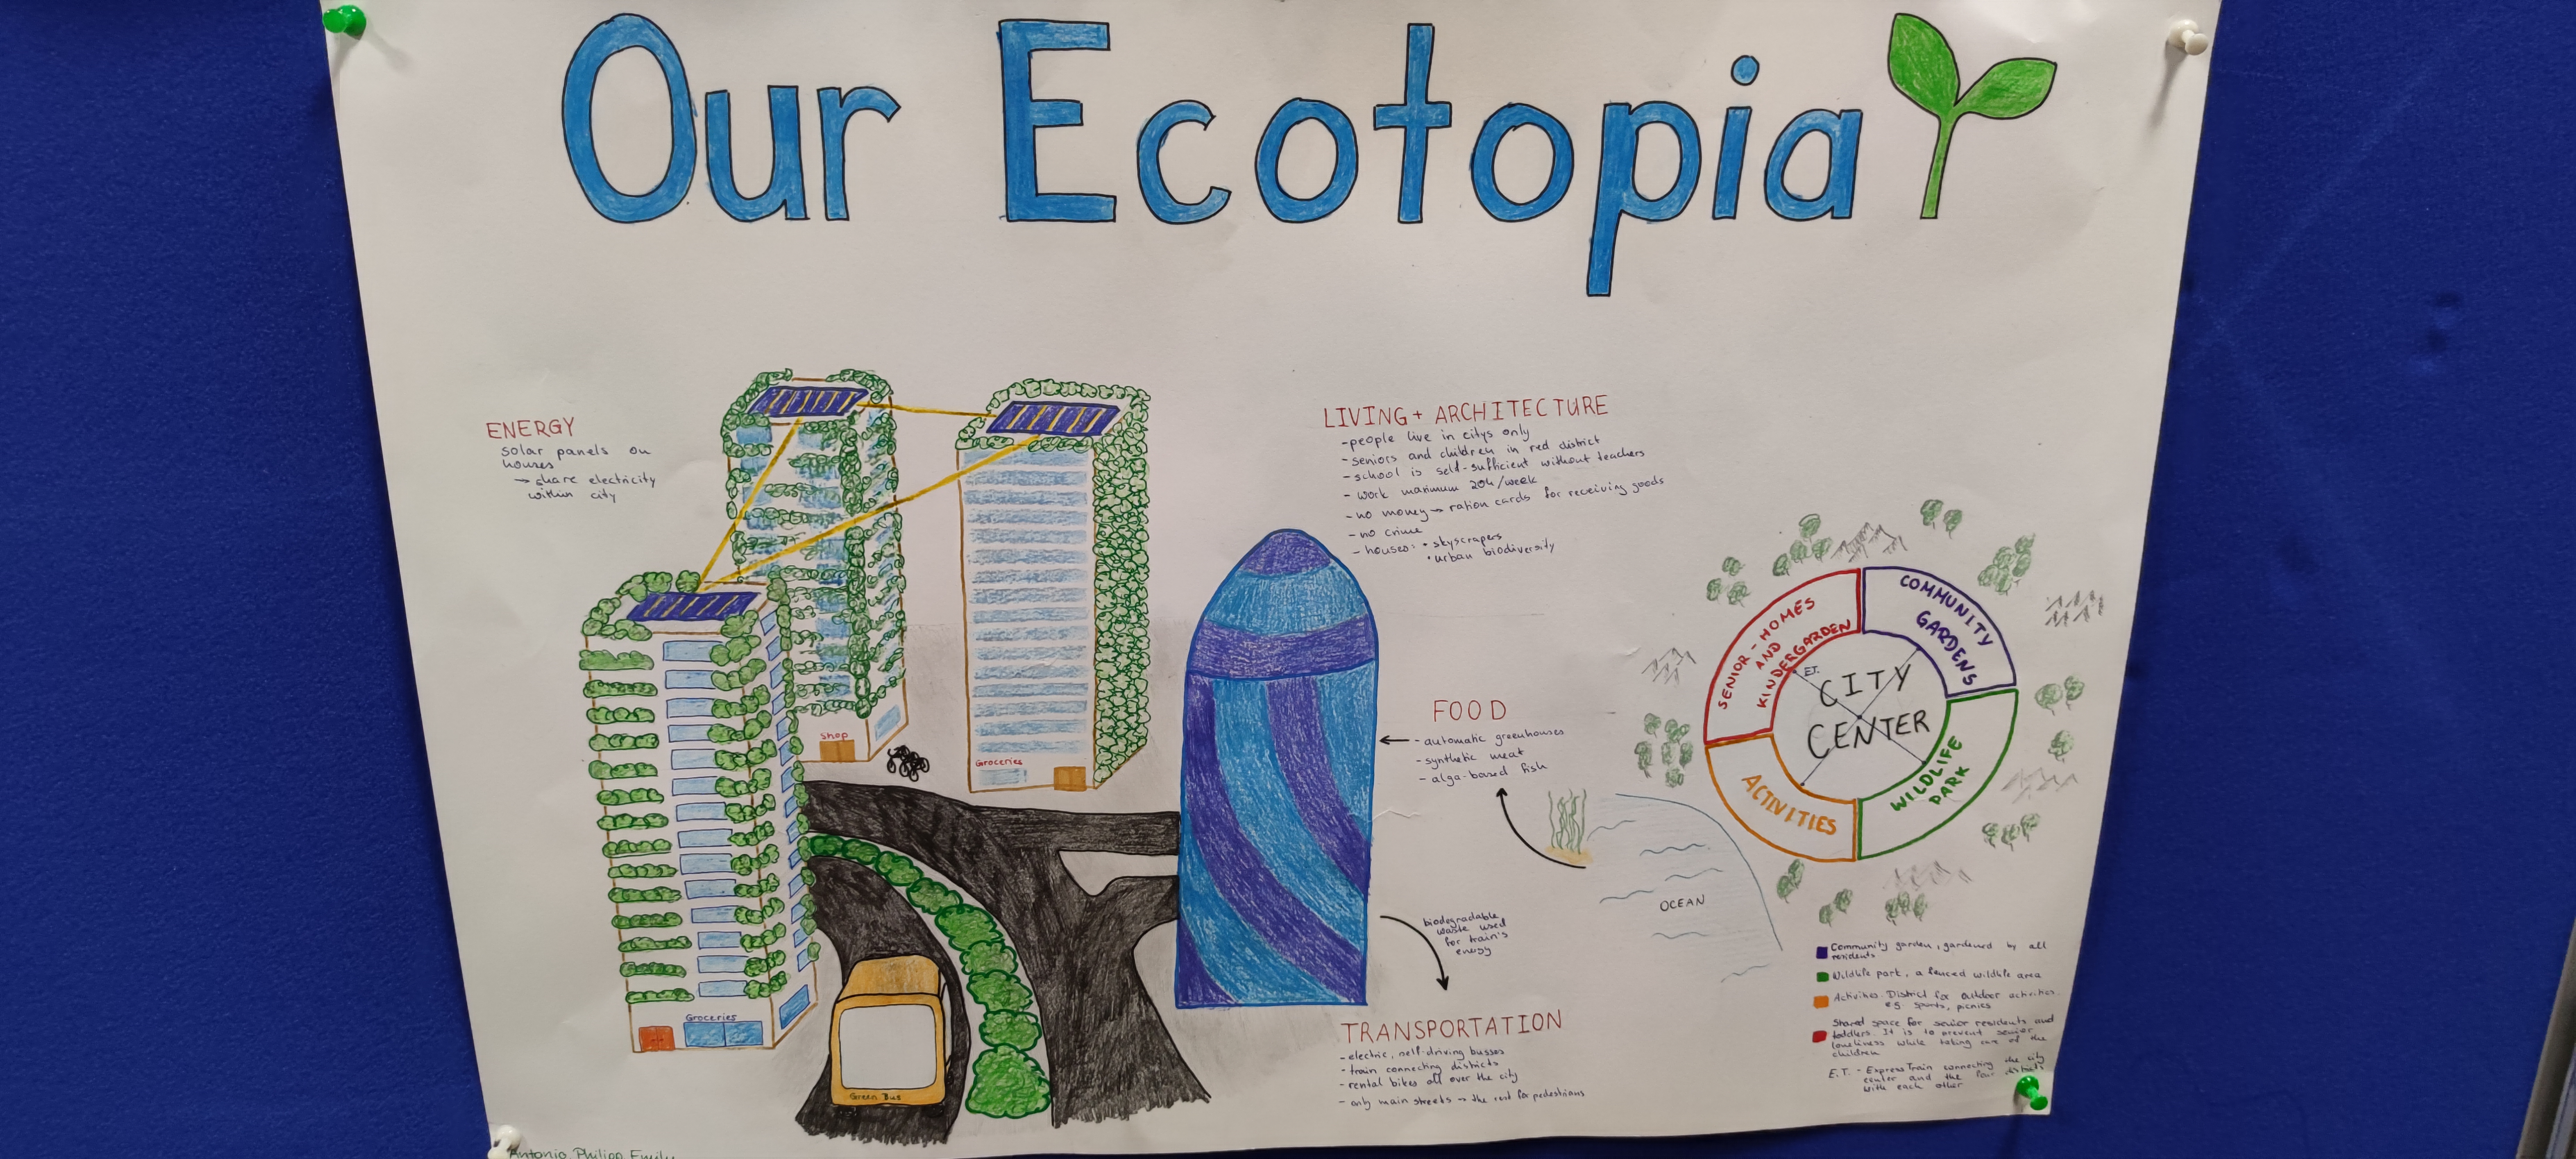 Our Ecotopia
ENERGY
solar panels on
houses
→ share electricity
within city
LIVING + ARCHITECTURE
- people live in citys only
- seniors and children in red district
- school is self-sufficient without teachers
- work maximum 20h/week
- no money → ration cards for receiving goods
- no crime
- houses: • skyscrapers
• urban biodiversity
Shop
Groceries
Groceries
Green Bus
FOOD
- automatic greenhouses
- synthetic meat
- alga-based fish
OCEAN
biodegradable
waste used
for train's
energy
TRANSPORTATION
- electric, self-driving busses
- train connecting districts
- rental bikes all over the city
- only main streets → the rest for pedestrians
SENIOR-HOMES
AND
KINDERGARDEN
COMMUNITY
GARDENS
E.T.
CITY
CENTER
ACTIVITIES
WILDLIFE
PARK
Community garden, gardened by all
residents
Wildlife park, a fenced wildlife area
Activities District for outdoor activities.
e.g. sports, picnics
Shared space for senior residents and
toddlers. It is to prevent senior
loneliness while taking care of the
children
E.T. - Express Train connecting the city
center and the four districts
with each other
Antonio Philipp Emily